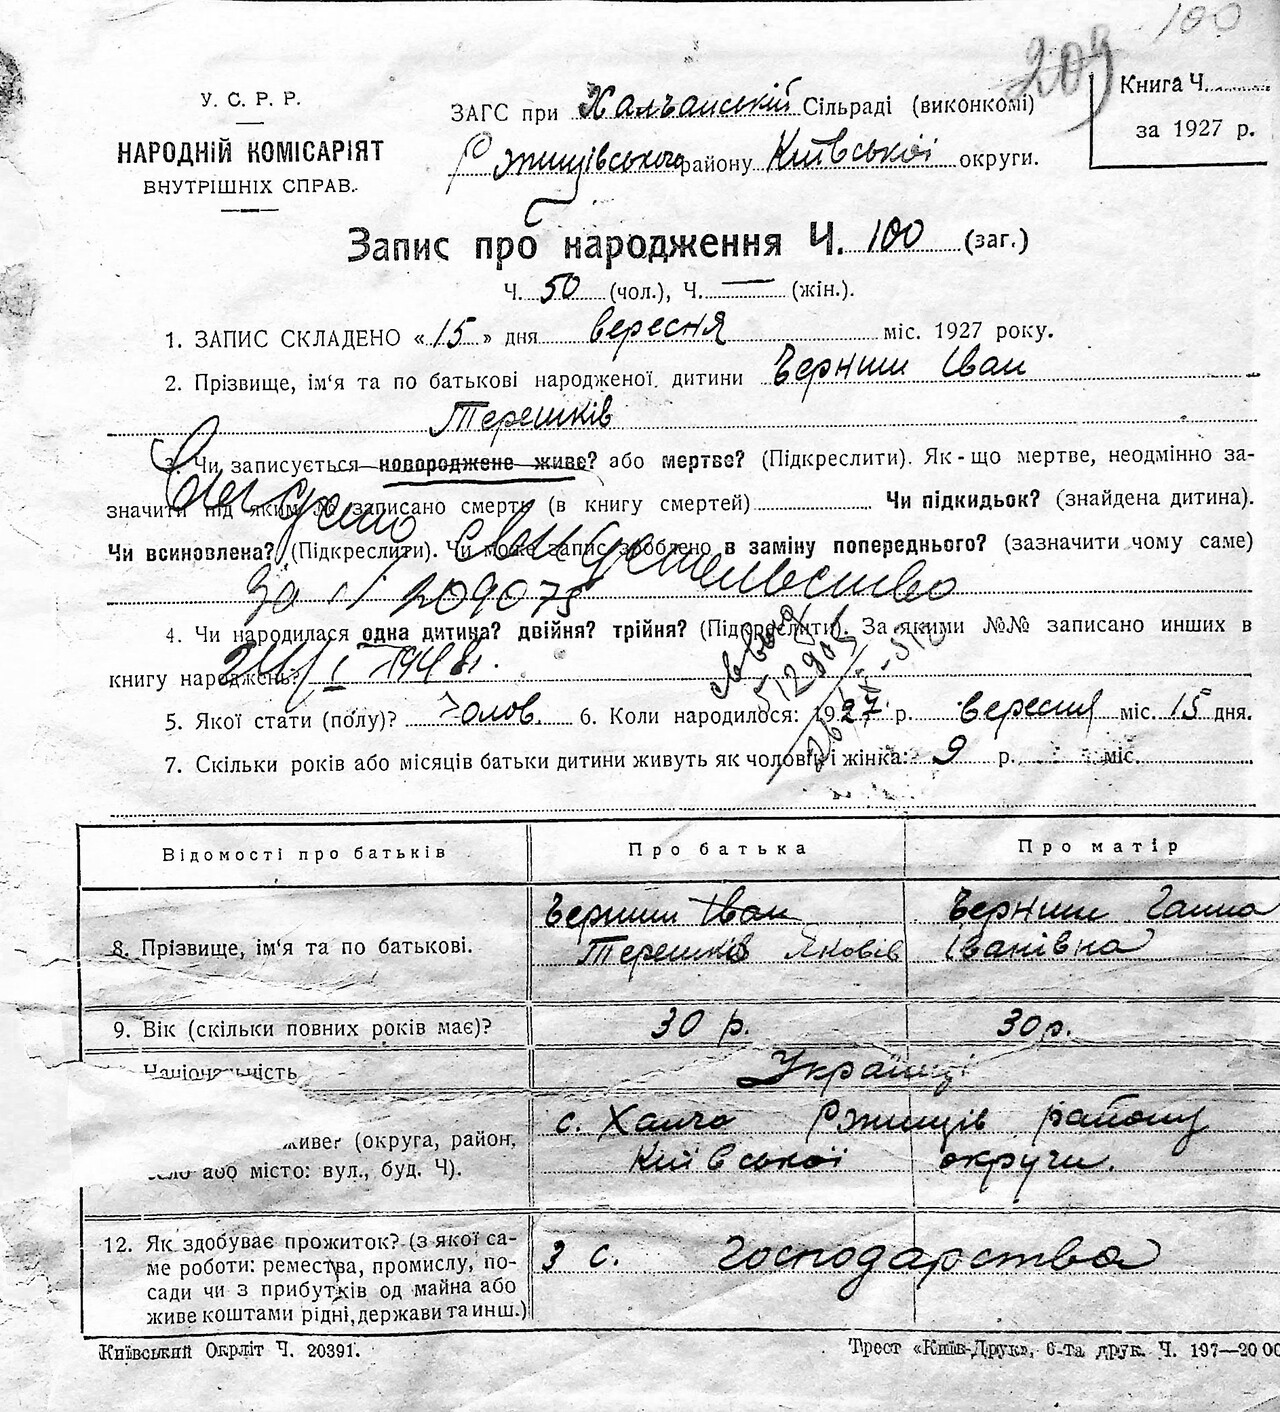 100
209
У. С. Р. Р.
НАРОДНІЙ КОМІСАРІЯТ
ВНУТРІШНІХ СПРАВ.
ЗАГС при Халчанській Сільраді (виконкомі)
Ржищівського району Київської округи.
Книга Ч.
за 1927 р.
Запис про народження Ч. 100 (заг.)
Ч. 50 (чол.), Ч. — (жін.).
1. ЗАПИС СКЛАДЕНО «15» дня вересня міс. 1927 року.
2. Прізвище, ім'я та по батькові народженої дитини Черниш Іван
Терешків
3. Чи записується новороджене живе? або мертве? (Підкреслити). Як-що мертве, неодмінно за-
значити під яким № записано смерть (в книгу смертей) Чи підкидьок? (знайдена дитина).
Чи всиновлена? (Підкреслити). Чи може запис зроблено в заміну попереднього? (зазначити чому саме)
Свидетельство
за № 209075
4. Чи народилася одна дитина? двійня? трійня? (Підкреслити). За якими №№ записано инших в
книгу народжень?
1948
512905
5. Якої стати (полу)? Чолов. 6. Коли народилося: 1927 р. вересня міс. 15 дня.
7. Скільки років або місяців батьки дитини живуть як чоловік і жінка: 9 р. міс.
Відомості про батьків
Про батька
Про матір
8. Прізвище, ім'я та по батькові.
Черниш Іван
Терешків Яковів
Черниш Ганна
Іванівна
9. Вік (скільки повних років має)?
30 р.
30 р.
Національність
Українці
живе (округа, район,
село або місто: вул., буд. Ч).
с. Халча Ржищів району
Київської округи.
12. Як здобуває прожиток? (з якої са-
ме роботи: ремества, промислу, по-
сади чи з прибутків од майна або
живе коштами рідні, держави та инш.)
З с. господарства
Київський Окрліт Ч. 20391.
Трест «Київ-Друк», 6-та друк. Ч. 197—2000